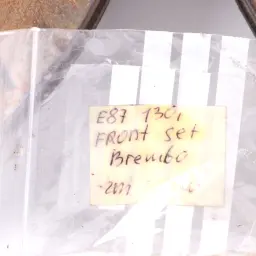 E87 130i
FRONT set
Brembo